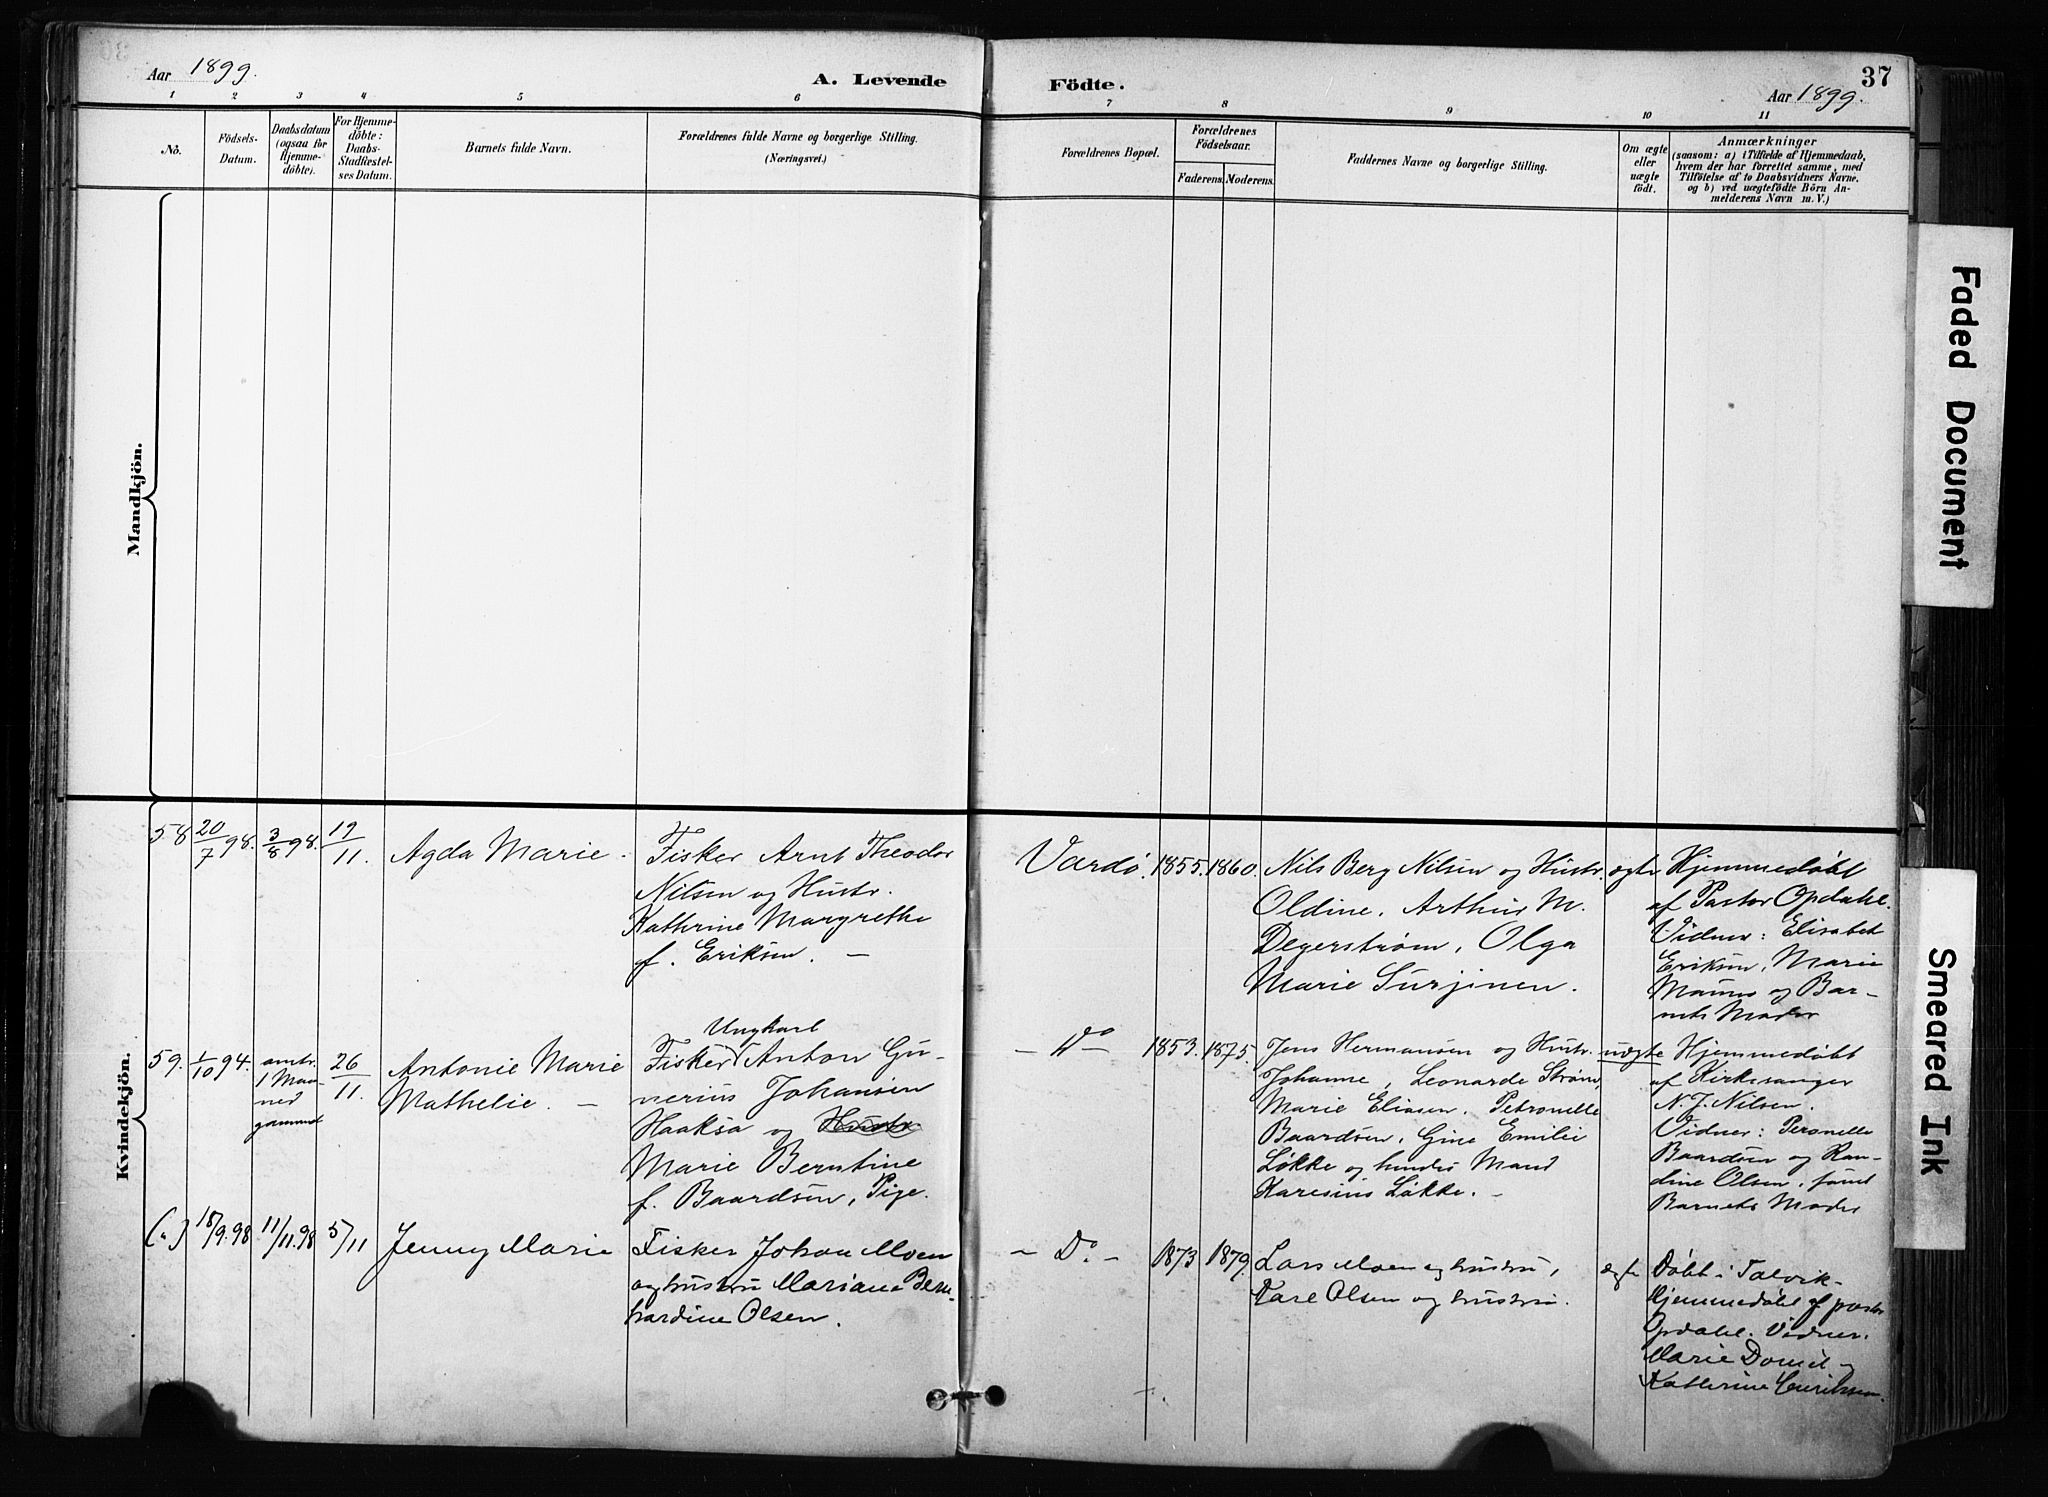 Aar 1899.
A. Levende Födte.
37
Aar 1899.
1 2 3 4 5 6 7 8 9 10 11
No.
Födsels-
Datum.
Daabsdatum
(ogsaa for
Hjemme-
döbte).
For Hjemme-
döbte:
Daabs-
Stadfæstel-
ses Datum.
Barnets fulde Navn.
Forældrenes fulde Navne og borgerlige Stilling.
(Næringsvei.)
Forældrenes Bopæl.
Forældrenes
Födselsaar.
Faderens. Moderens.
Faddernes Navne og borgerlige Stilling.
Om ægte
eller
uægte
födt.
Anmærkninger
(saasom: a) i Tilfælde af Hjemmedaab,
hvem der har forrettet samme, med
Tilföielse af to Daabsvidners Navne,
og b) ved uægtefödte Börn An-
melderens Navn m. V.)
Mandkjön.
Kvindekjön.
58 20/7 98. 3/8 98. 19/11. Agda Marie.
Fisker Arnt Theodor
Nilsen og Hustr.
Kathrine Margrethe
f. Eriksen. —
Vardø. 1855. 1860.
Nils Berg Nilsen og Hustr.
Oldine. Arthur M.
Degerstrøm, Olga
Marie Surjinen.
ægte
Hjemmedøbt
af Pastor Opdahl.
Vidner: Elisabet
Eriksen, Marie
og Bar-
nets Moder
59. 1/10 94. omtr.
1 Maa-
ned
gammel
26/11.
Antonie Marie
Mathelie. —
Ungkarl
Fisker Anton Gu-
nerius Johansen
Haaksa og Hustr.
Marie Berntine
f. Baardsen, Pige.
— Do — 1853. 1875.
Jens Hermansen og Hustr.
Johanne, Leonarde Strøm,
Marie Eliasen. Petronelle
Baardsen, Gina Emilie
Løkke og hendes Mand
Karesius Løkke. —
uægte
Hjemmedøbt
af Kirkesanger
N. J. Nilsen.
Vidner: Peronelle
Baardsen og Ran-
dine Olsen, samt
Barnets Moder
(a) 18/9.98 11/11.98 5/11 Jenny Marie
Fisker Johan Moen
og hustru Mariane Bern-
hardine Olsen.
— Do. — 1873 1879.
Lars Moen og hustru,
Kare Olsen og hustru.
ægte
Døbt i Talvik-
Hjemmedøbt af pastor
Opdahl. Vidner.
Marie Daniel og
Katherine Henriksen.
Faded Document
Smeared Ink